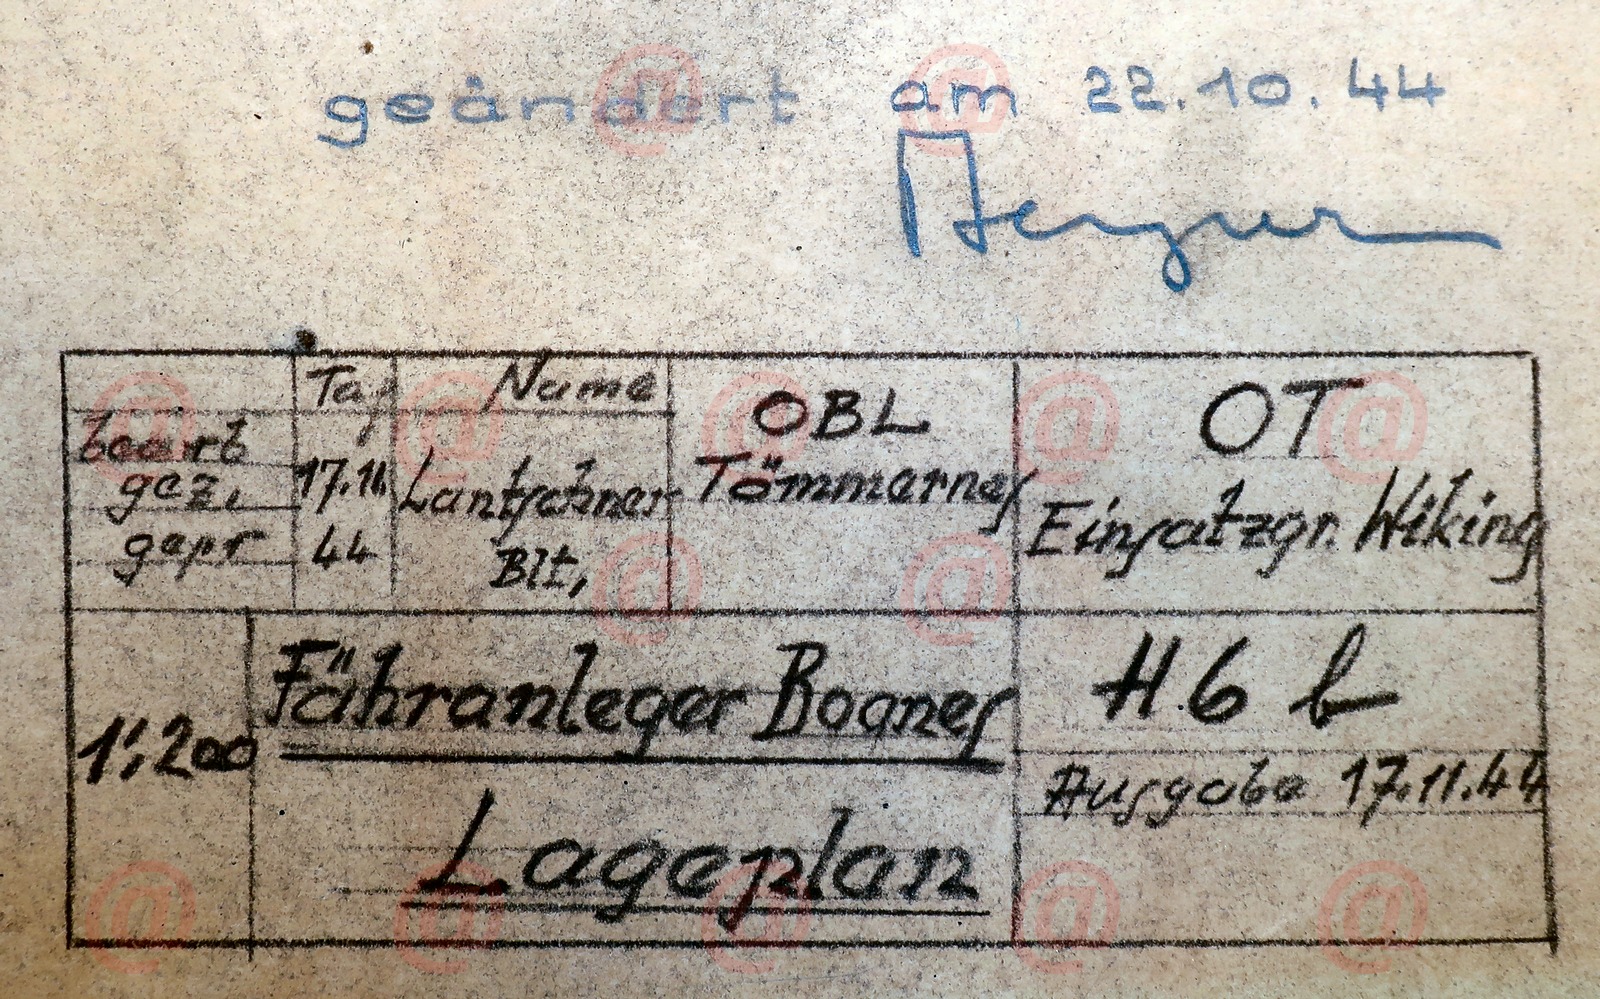 geändert am 22.10.44
Tag Name
bearb
gez.
gepr
17.11.
44
Lantschner
Blt,
OBL
Tömmernes
OT
Einsatzgr. Wiking
1:200
Fähranleger Bognes
Lageplan
H.6 b
Ausgabe 17.11.44